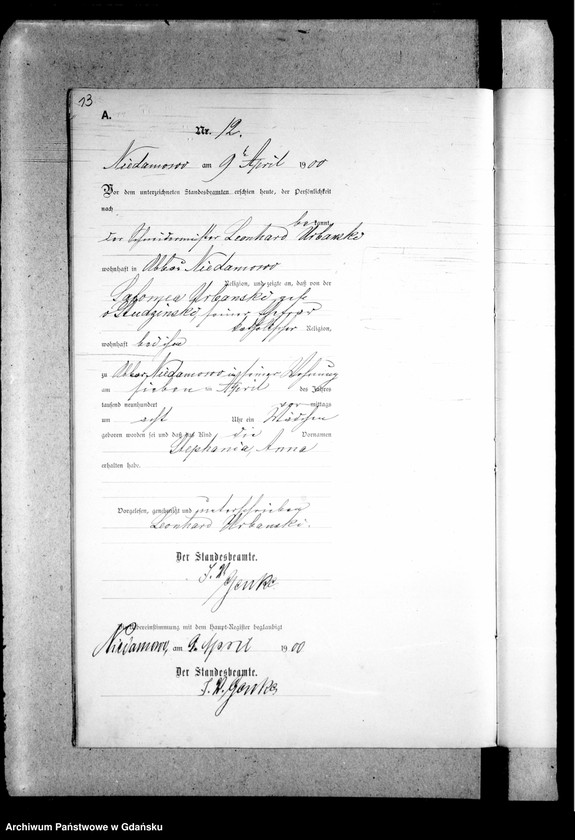 13
A.
Nr. 12.
Niedamowo am 9t April 1900
Vor dem unterzeichneten Standesbeamten erschien heute, der Persönlichkeit
nach
bekannt,
der Schneidermeister Leonhard Urbanski
wohnhaft in Abbau Niedamowo
Religion, und zeigte an, daß von der
Salomea Urbanski geb.
v Studzinski, seiner Ehefrau
katholischer Religion,
wohnhaft bei ihm
zu Abbau Niedamowo in seiner Wohnung
am sieben April des Jahres
tausend neunhundert vor mittags
um acht Uhr ein Mädchen
geboren worden sei und daß das Kind die Vornamen
Stephania, Anna
erhalten habe.
Vorgelesen, genehmigt und unterschrieben
Leonhard Urbanski.
Der Standesbeamte.
J. V.
Genke
Übereinstimmung mit dem Haupt-Register beglaubigt
Niedamowo, am 9. April 1900
Der Standesbeamte.
J. V. Genke,
Archiwum Państwowe w Gdańsku